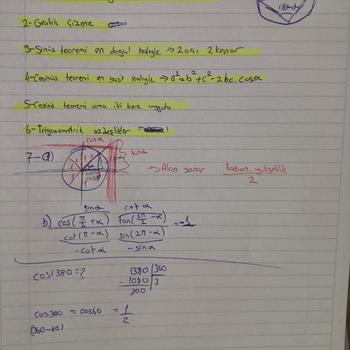 180-α
2- Grafik Çizme
3- Sinüs teoremi en doğal haliyle → 2 açı 2 kenar
4- Cosinüs teoremi en basit haliyle → a² = b² + c² - 2bc.cosα
5- Cosinüs teoremi ama iki kere uygula
6- Trigonometrik özdeşlikler
cotα
7- a)
→ Alan sorar taban.yükseklik
2
sinα cotα
b) cos(π/2 + α) tan(3π/2 - α) = -1
cot(π - α) sin(2π - α)
-cotα -sinα
cos1380 = ? 1380 | 360
- 1080 | 3
300
cos300 = cos60 = 1/2
(360-60)